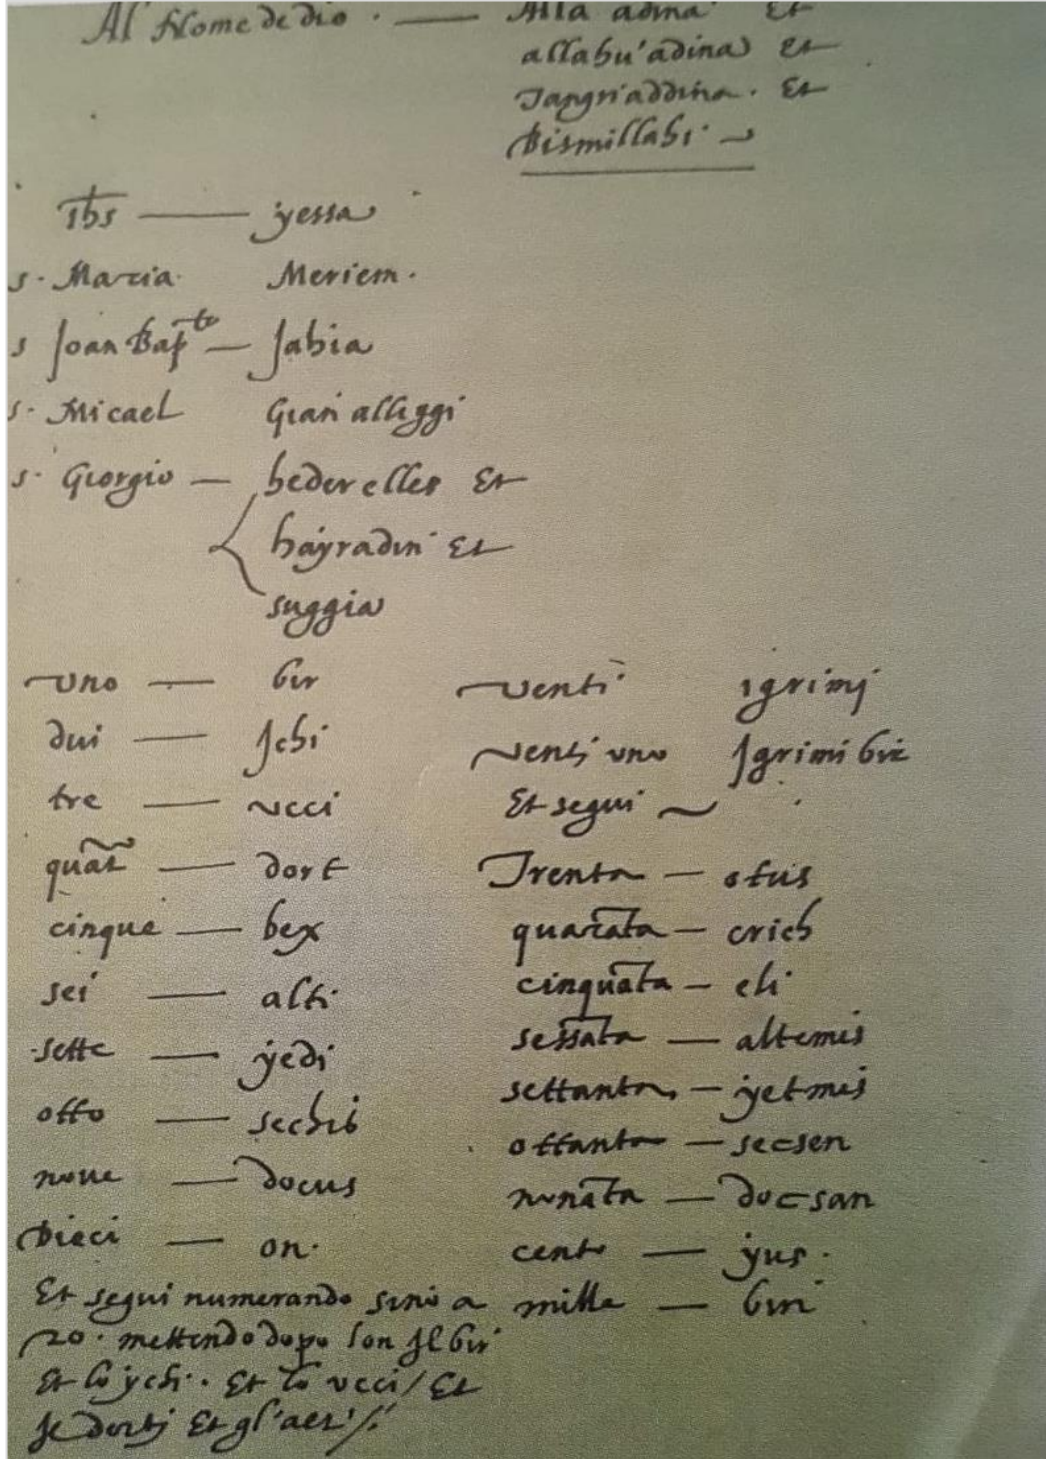 Al Nome de dio · — Alla adina Et
allahu'adina Et
Tangriaddina · Et
Bismillahi ·
Ihs — yessa
s · Maria · Meriem ·
s Joan Bapto — Jahia
s · Micael Gian alliggi
s · Giorgio — hederelles Et
hayradin Et
suggia
uno — bir
dui — Ichi
tre — ucci
quat — dort
cinque — bex
sei — alti
sette — yedi
otto — sechis
nove — docus
Dieci — on ·
Et segui numerando sino a
20 · mettendo dopo lon Il bir
Et lo ychi · Et lo ucci / Et
Il dortj Et gl'aet' /:
venti igrimj
venti uno Igrimi bir
Et segui ~
Trenta — otus
quarāta — crich
cinquāta — eli
sessāta — altemis
settanta — yetmis
ottanta — secsen
nonāta — docsan
cento — yus ·
mille — bin